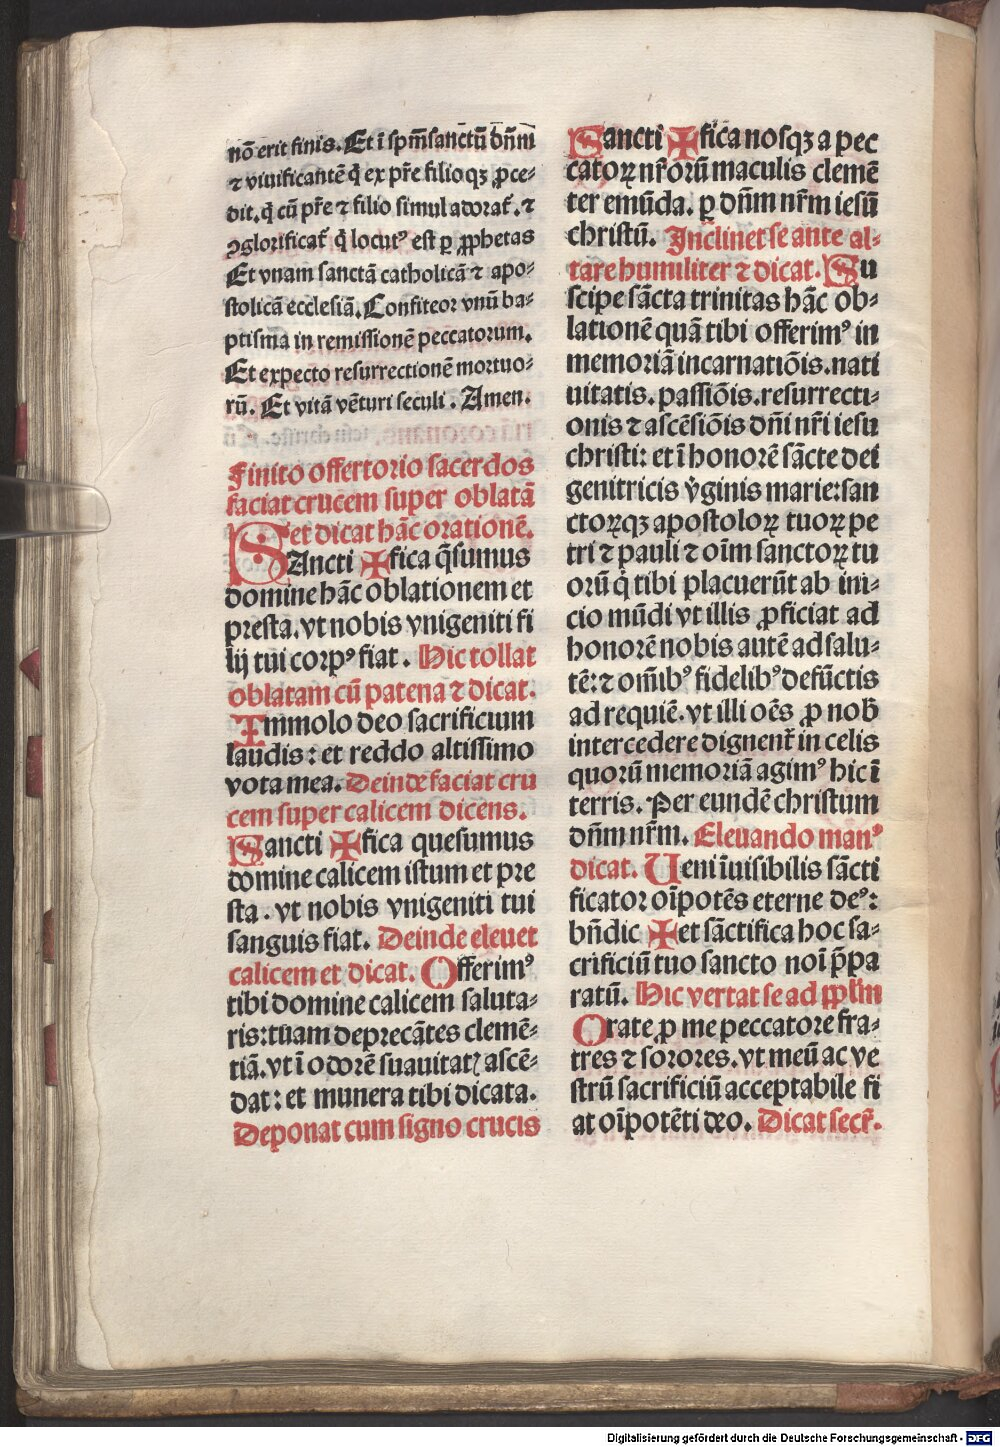 nō erit finis. Et ī spm̄ sanctū dn̄m
⁊ viuificantē q̇ ex pr̄e filioqꝫ ꝓce⸗
dit. q̇ cū pr̄e ⁊ filio simul adorat᷑. ⁊
ꝯglorificat᷑ q̇ locutꝰ est ꝑ ꝓphetas
Et vnam sanctā catholicā ⁊ apo⸗
stolicā ecclesiā. Confiteor vnū ba⸗
ptisma in remissionē peccatorum.
Et expecto resurrectionē mortuo⸗
rū. Et vitā vēturi seculi. Amen.
Finito offertorio sacerdos
faciat crucem super oblatā
et dicat hāc orationē.
SAncti ✠fica q̄sumus
domine hāc oblationem et
presta. vt nobis vnigeniti fi
lij tui corpꝰ fiat. Hic tollat
oblatam cū patena ⁊ dicat.
Immolo deo sacrificium
laudis: et reddo altissimo
vota mea. Deinde faciat cru
cem super calicem dicens.
Sancti ✠fica quesumus
domine calicem istum et pre
sta. vt nobis vnigeniti tui
sanguis fiat. Deinde eleuet
calicem et dicat. Offerimꝰ
tibi domine calicem saluta⸗
ris: tuam deprecātes clemē⸗
tiā. vt ī odorē suauitatꝭ ascē⸗
dat: et munera tibi dicata.
Deponat cum signo crucis
Sancti ✠fica nosqꝫ a pec
catoꝝ nr̄orū maculis clemē
ter emūda. ꝑ dn̄m nr̄m iesū
christū. Inclinet se ante al⸗
tare humiliter ⁊ dicat. Su
scipe sācta trinitas hāc ob⸗
lationē quā tibi offerimꝰ in
memoriā incarnatiōis. nati
uitatis. passiōis. resurrecti⸗
onis ⁊ ascēsiōis dn̄i nr̄i iesu
christi: et ī honorē sācte dei
genitricis v̇ginis marie: san
ctoꝝqꝫ apostoloꝝ tuoꝝ pe
tri ⁊ pauli ⁊ oīm sanctoꝝ tu
orū q̇ tibi placuerūt ab ini⸗
cio mūdi vt illis ꝓficiat ad
honorē nobis autē ad salu⸗
tē: ⁊ om̄ibꝰ fidelibꝰ defūctis
ad requiē. vt illi oēs ꝓ nob̄
intercedere dignent᷑ in celis
quorū memoriā agimꝰ hic ī
terris. Per eundē christum
dn̄m nr̄m. Eleuando manꝰ
dicat. Ueni īuisibilis sācti
ficator oīpotēs eterne deꝰ:
bn̄dic ✠ et sāctifica hoc sa⸗
crificiū tuo sancto noī p̄pa
ratū. Hic vertat se ad ppl̄m
Orate ꝓ me peccatore fra⸗
tres ⁊ sorores. vt meū ac ve
strū sacrificiū acceptabile fi
at oīpotēti deo. Dicat secr̄.
Digitalisierung gefördert durch die Deutsche Forschungsgemeinschaft - DFG